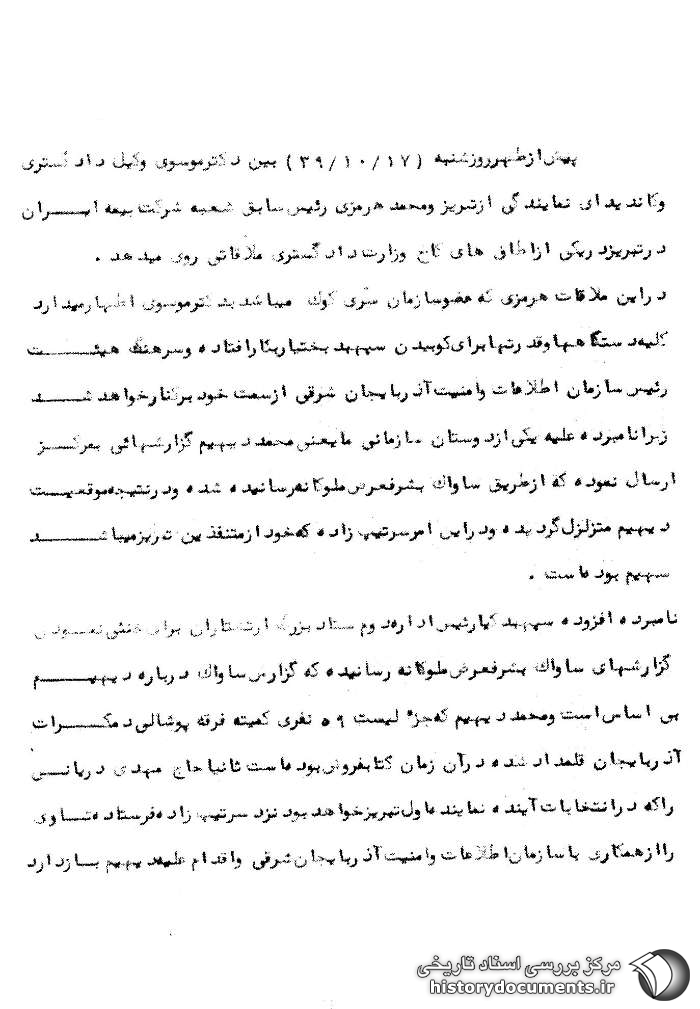 پیش از ظهر روز شنبه (۳۹/۱۰/۱۷) بین دکتر موسوی وکیل دادگستری
وکاندیدای نمایندگی از تبریز ومحمد هرمزی رئیس سابق شعبه شرکت بیمه ایـــران
در تبریز در یکی از اطاق های کاخ وزارت دادگستری ملاقاتی روی میدهد .
در این ملاقات هرمزی که عضو سازمان سری کوک میباشد بدکتر موسوی اظهار میدارد
کلیه دستگاهها وقدرتها برای کوبیدن سپهبد بختیار بکار افتاده وسرهنگ هیئـــت
رئیس سازمان اطلاعات وامنیت آذربایجان شرقی از سمت خود برکنار خواهد شـــد
زیرا نامبرده علیه یکی از دوستان سازمانی ما یعنی محمد دیهیم گزارشهائی بمرکـــز
ارسال نموده که از طریق ساواک بشرفعرض ملوکانه رسانیده شده ودر نتیجه موقعیـــت
دیهیم متزلزل گردیده ودر این امر سرتیپ زاده که خود از متنفذین تبریز میباشـــد
سهیم بوده است .
نامبرده افزوده سپهبد کیا رئیس اداره دوم ستاد بزرگ ارتشتاران برای خنثی نمـــودن
گزارشهای ساواک بشرفعرض ملوکانه رسانیده که گزارش ساواک درباره دیهیـــم
بی اساس است ومحمد دیهیم که جزء لیست ۵۹ نفری کمیته فرقه پوشالی دمکـــرات
آذربایجان قلمداد شده در آن زمان کتابفروش بوده است ثانیا حاج مهدی دریانـــی
را که در انتخابات آینده نماینده اول تبریز خواهد بود نزد سرتیپ زاده فرستاده تـــا وی
را از همکاری با سازمان اطلاعات وامنیت آذربایجان شرقی واقدام علیه دیهیم بـــازدارد
مرکز بررسی اسناد تاریخی
historydocuments.ir